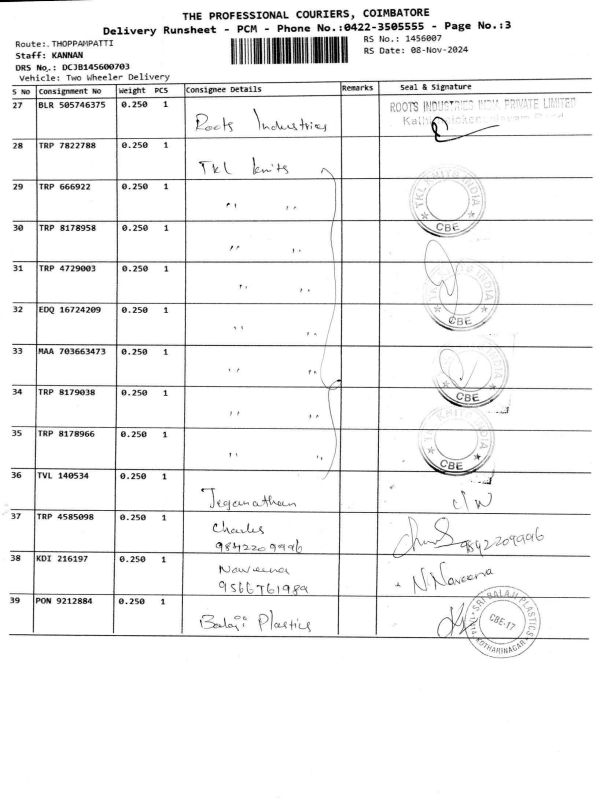 THE PROFESSIONAL COURIERS, COIMBATORE
Delivery Runsheet - PCM - Phone No.:0422-3505555 - Page No.:3
Route:. THOPPAMPATTI RS No.: 1456007
Staff: KANNAN RS Date: 08-Nov-2024
DRS No.: DCJB145600703
Vehicle: Two Wheeler Delivery
S No Consignment No Weight PCS Consignee Details Remarks Seal & Signature
27 BLR 505746375 0.250 1 Roots Industries ROOTS INDUSTRIES INDIA PRIVATE LIMITED
28 TRP 7822788 0.250 1 TKL knits
29 TRP 666922 0.250 1 ,, ,, TKL KNITS INDIA CBE
30 TRP 8178958 0.250 1 ,, ,,
31 TRP 4729003 0.250 1 ,, ,, TKL KNITS INDIA CBE
32 EDQ 16724209 0.250 1 ,, ,,
33 MAA 703663473 0.250 1 ,, ,, CBE
34 TRP 8179038 0.250 1 ,, ,,
35 TRP 8178966 0.250 1 ,, ,, TKL KNITS INDIA CBE
36 TVL 140534 0.250 1 Jeganathan c/w
37 TRP 4585098 0.250 1 Charles 9842209996 9842209996
38 KDI 216197 0.250 1 Naveena 9566761989 N. Naveena
39 PON 9212884 0.250 1 Balaji Plastics SRI BALAJI PLASTICS CBE-17 KOTHARINAGAR